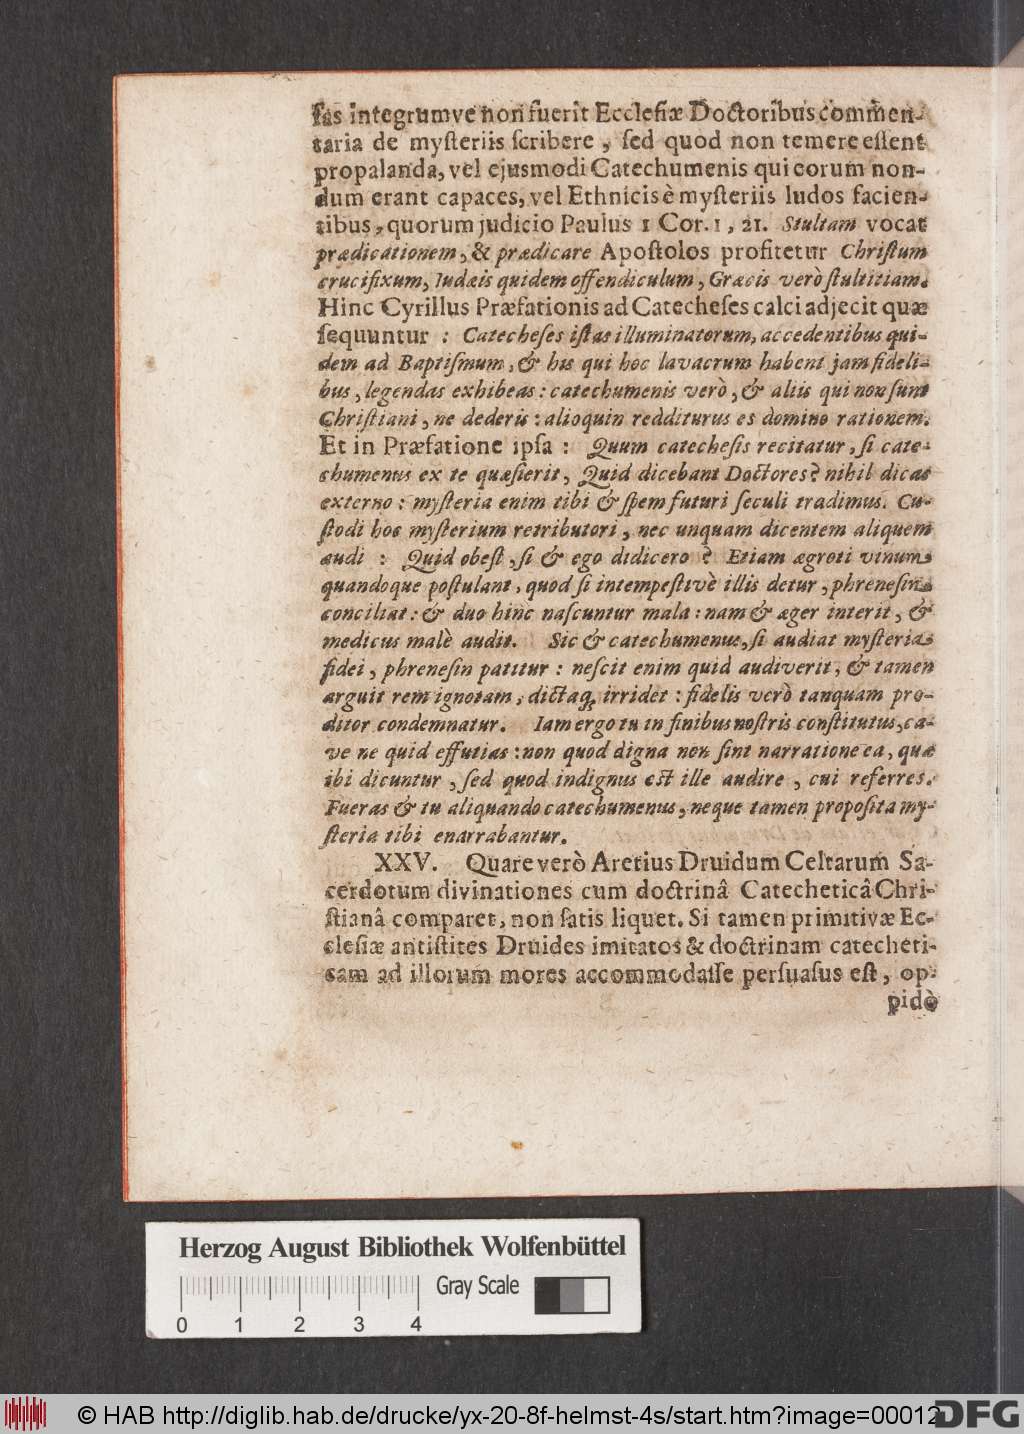 fas integrumve non fuerit Ecclesiæ Doctoribus com̃en-
taria de mysteriis scribere, sed quod non temere essent
propalanda, vel ejusmodi Catechumenis qui eorum non-
dum erant capaces, vel Ethnicis è mysteriis ludos facien-
tibus, quorum judicio Paulus 1 Cor. 1, 21. Stultam vocat
prædicationem, & prædicare Apostolos profitetur Christum
crucifixum, Iudæis quidem offendiculum, Græcis verò stultitiam.
Hinc Cyrillus Præfationis ad Catecheses calci adjecit quæ
sequuntur : Catecheses istas illuminatorum, accedentibus qui-
dem ad Baptismum, & his qui hoc lavacrum habent jam fideli-
bus, legendas exhibeas : catechumenis verò, & aliis qui non sunt
Christiani, ne dederis : alioquin redditurus es domino rationem.
Et in Præfatione ipsa : Quum catechesis recitatur, si cate-
chumenus ex te quæsierit, Quid dicebant Doctores? nihil dicas
externo : mysteria enim tibi & spem futuri seculi tradimus. Cu-
stodi hoc mysterium retributori, nec unquam dicentem aliquem
audi : Quid obest, si & ego didicero ? Etiam ægroti vinum
quandoque postulant, quod si intempestivè illis detur, phrenesin
conciliat : & duo hinc nascuntur mala : nam & æger interit, &
medicus malè audit. Sic & catechumenus, si audiat mysteria
fidei, phrenesin patitur : nescit enim quid audiverit, & tamen
arguit rem ignotam, dictaq́; irridet : fidelis verò tanquam pro-
ditor condemnatur. Iam ergo tu in finibus nostris constitutus, ca-
ve ne quid effutias : non quod digna non sint narratione ea, quæ
ibi dicuntur, sed quod indignus est ille audire, cui referres.
Fueras & tu aliquando catechumenus, neque tamen proposita my-
steria tibi enarrabantur.
XXV. Quare verò Aretius Druidum Celtarum Sa-
cerdotum divinationes cum doctrinâ Catecheticâ Chri-
stianâ comparet, non satis liquet. Si tamen primitivæ Ec-
clesiæ antistites Druides imitatos & doctrinam catecheti-
cam ad illorum mores accommodasse persuasus est, op-
pidò
Herzog August Bibliothek Wolfenbüttel
Gray Scale
0 1 2 3 4
© HAB http://diglib.hab.de/drucke/yx-20-8f-helmst-4s/start.htm?image=00012
DFG